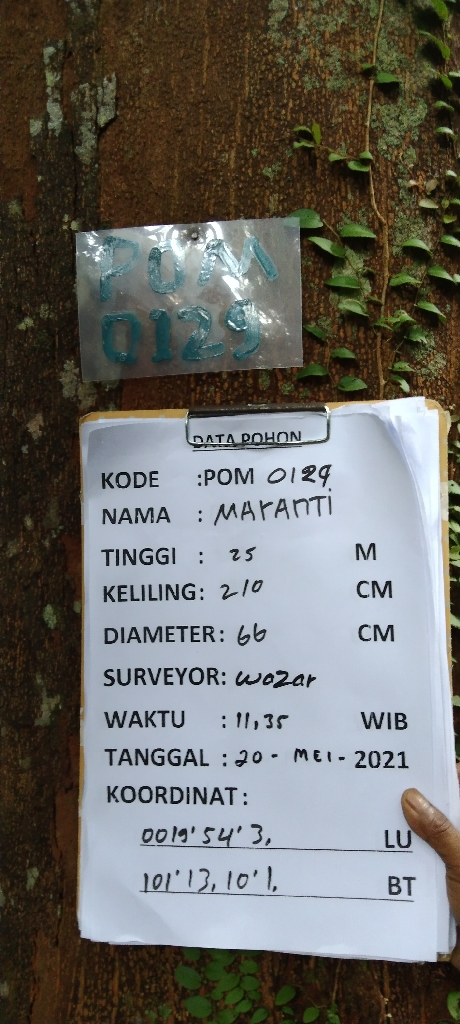 POM
0129
DATA POHON
KODE :POM 0129
NAMA : MARANTI
TINGGI : 25 M
KELILING: 210 CM
DIAMETER: 66 CM
SURVEYOR: wozar
WAKTU : 11,35 WIB
TANGGAL : 20 - MEI - 2021
KOORDINAT :
0019'54'3, LU
101'13,10'1, BT